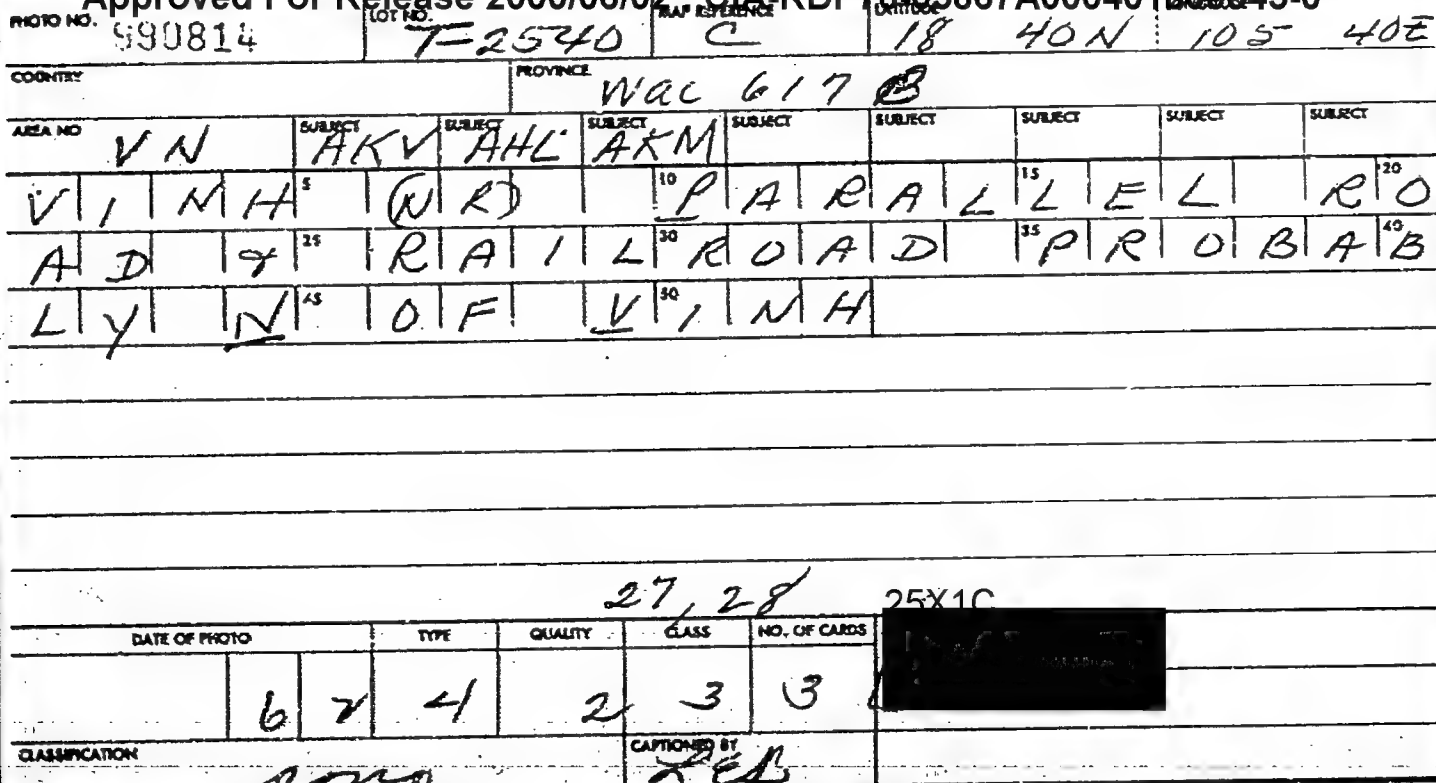 Approved For Release 2000/08/02 CIA-RDP
PHOTO NO. 990814 LOT NO. T-2540 MAP REFERENCE C LATITUDE 18 40N 105 40E
COUNTRY PROVINCE Wac 617 B
AREA NO VN SUBJECT AKV SUBJECT AHL SUBJECT AKM SUBJECT SUBJECT SUBJECT SUBJECT SUBJECT
VINH 5 (NR) 10 PARALL 15 LEL RO 20
AD & 25 RAIL 30 ROAD 35 PROBAB 40
LY N 45 OF V 50 INH
27, 28 25X1C
DATE OF PHOTO TYPE QUALITY CLASS NO. OF CARDS
62 4 2 3 3
CLASSIFICATION CAPTIONED BY